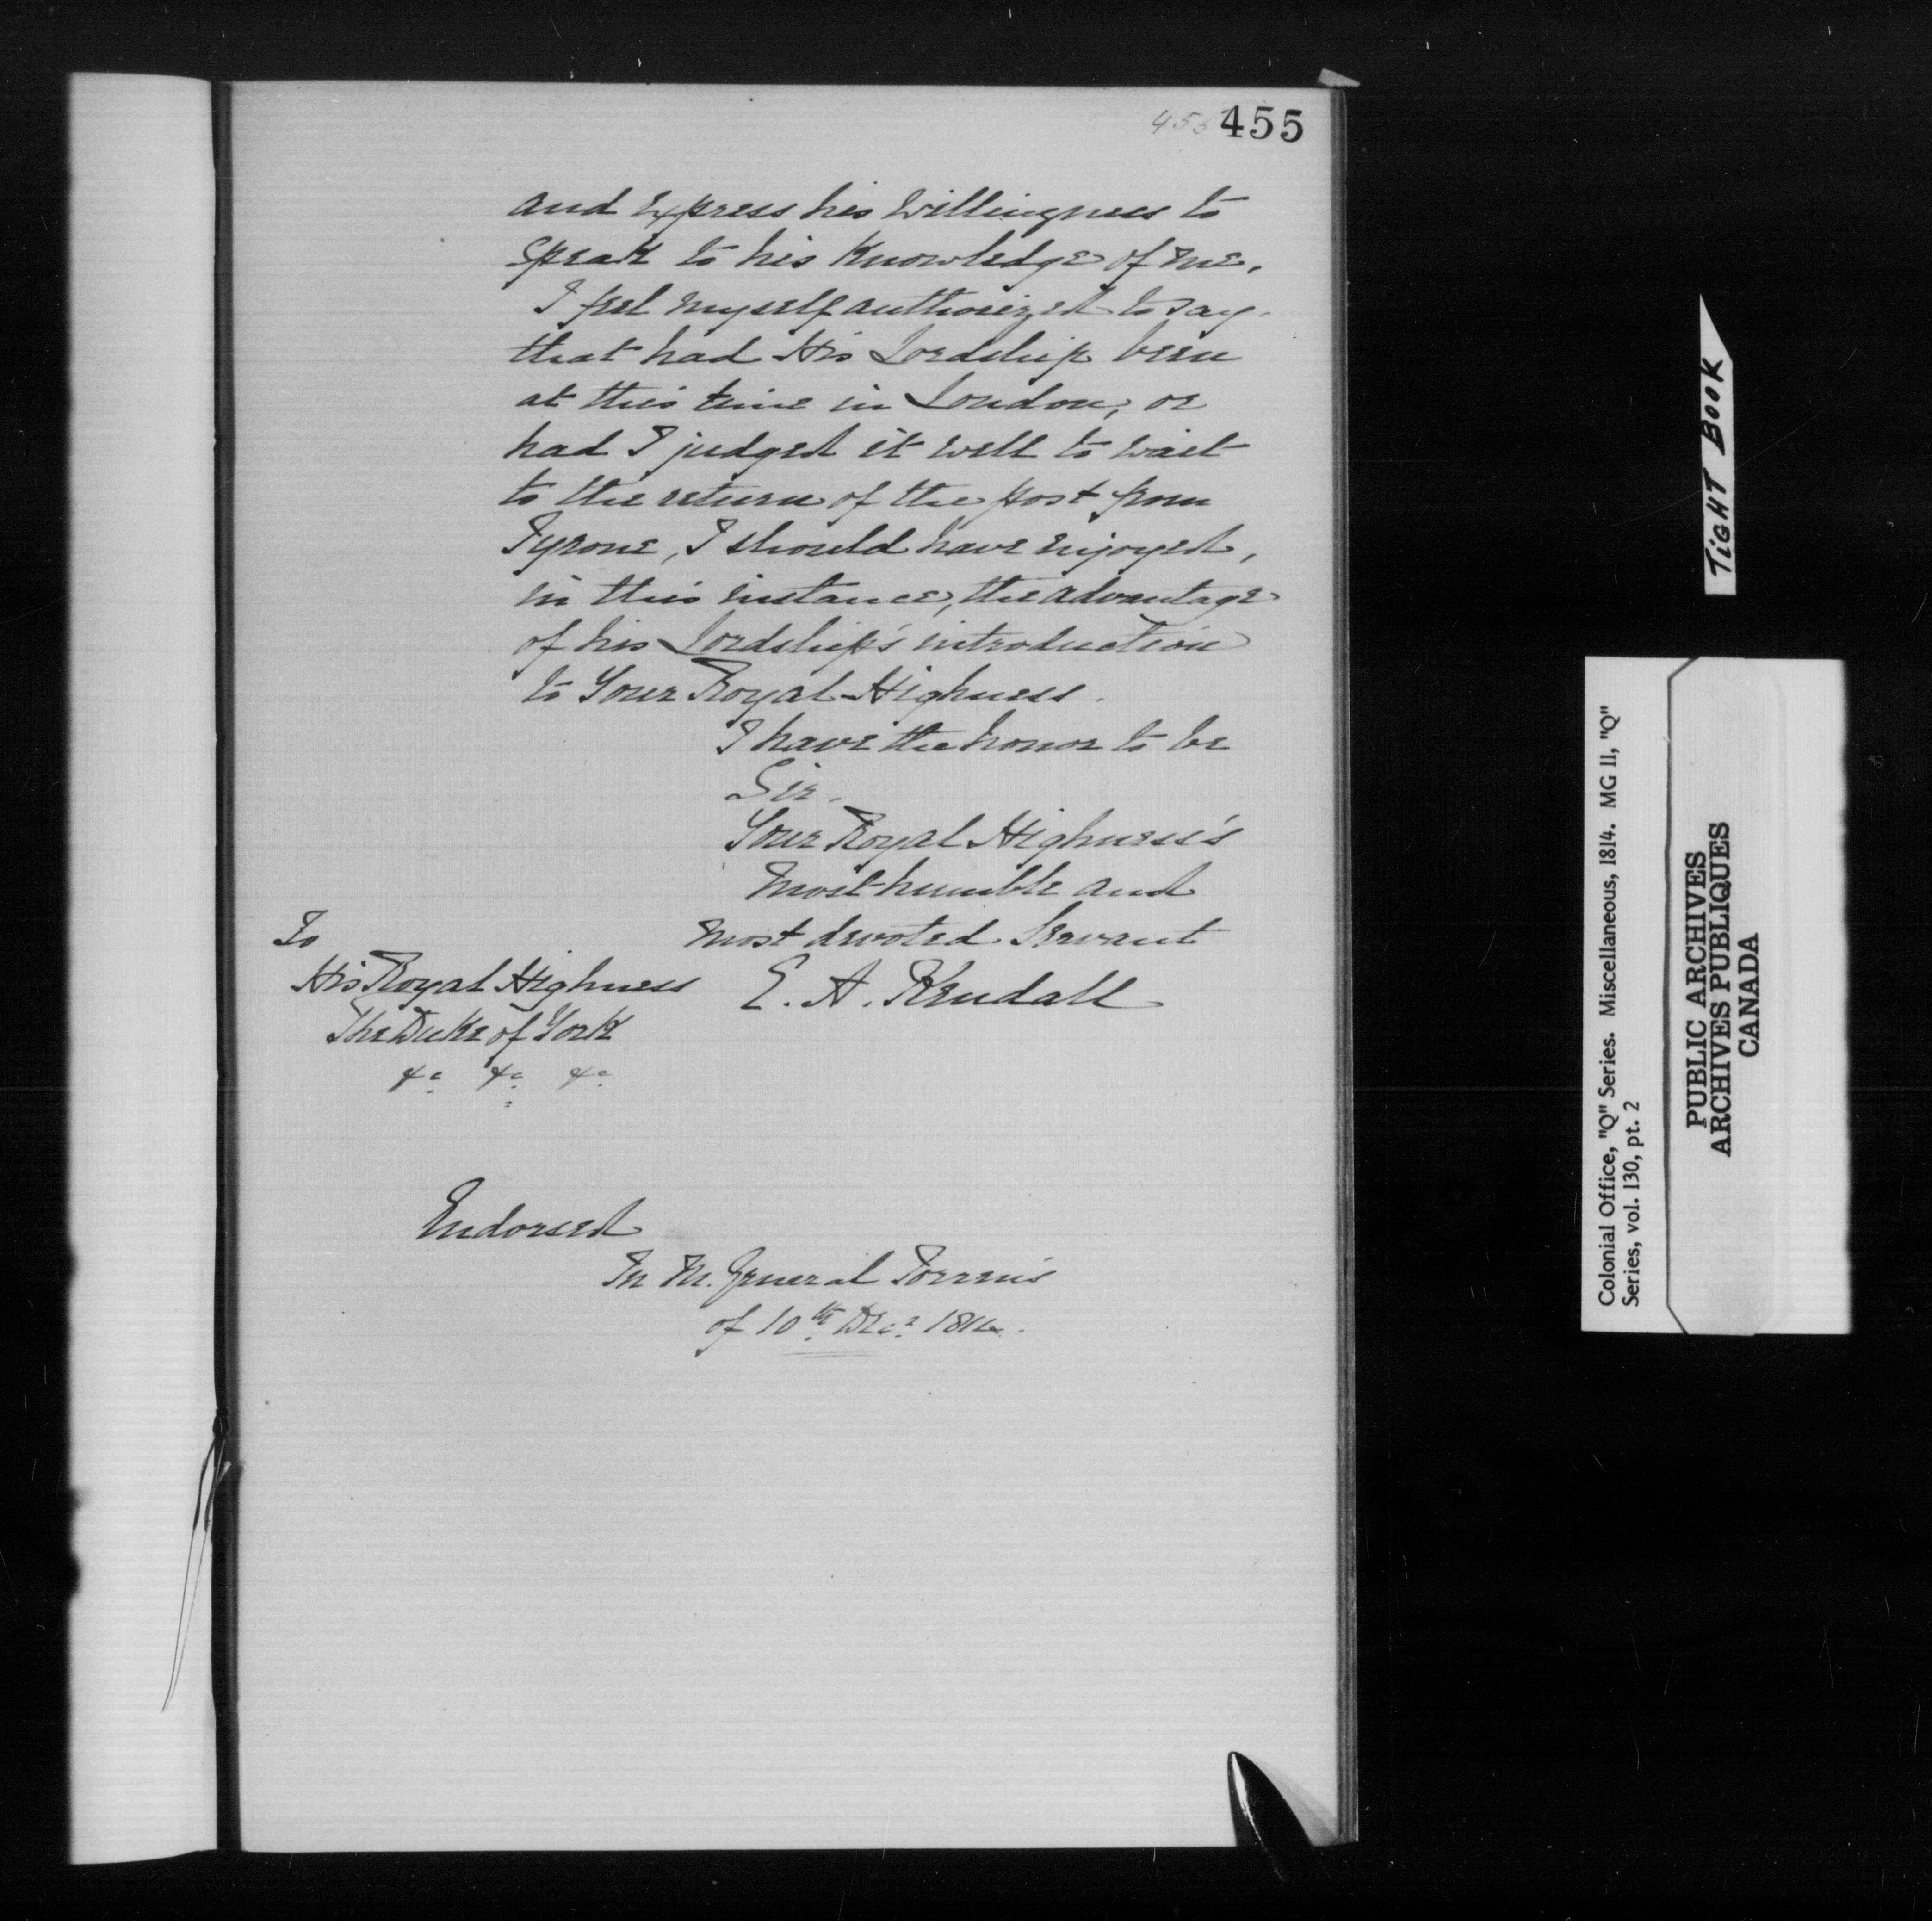 455 455
and express his willingness to
speak to his knowledge of me,
I feel myself authorized to say
that had His Lordship been
at this time in London, or
had I judged it well to wait
to the return of the post from
Tyrone, I should have enjoyed,
in this instance, the advantage
of his Lordship's introduction
to Your Royal Highness.
I have the honor to be
Sir.
Your Royal Highness's
most humble and
most devoted Servant
E. A. Kendall
To
His Royal Highness
The Duke of York
&c &c &c
Endorsed
In M. General Torrens
of 10th Decr 1814.
TIGHT BOOK
Colonial Office, "Q" Series. Miscellaneous, 1814. MG 11, "Q"
Series, vol. 130, pt. 2
PUBLIC ARCHIVES
ARCHIVES PUBLIQUES
CANADA